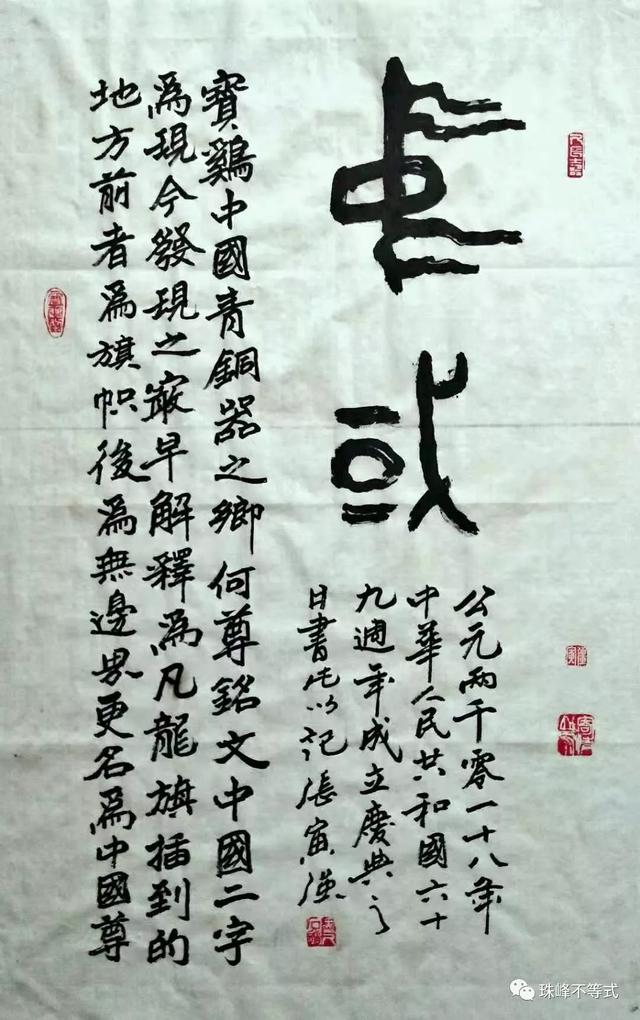 中或
公元兩千零一十八年
中華人民共和國六十
九週年成立慶典之
日書此以記張寅强
寶鷄中國青銅器之鄉何尊銘文中國二字
爲現今發現之㝡早解釋爲凡龍旗插到的
地方前者爲旗幟後爲無邊界更名爲中國尊
珠峰不等式